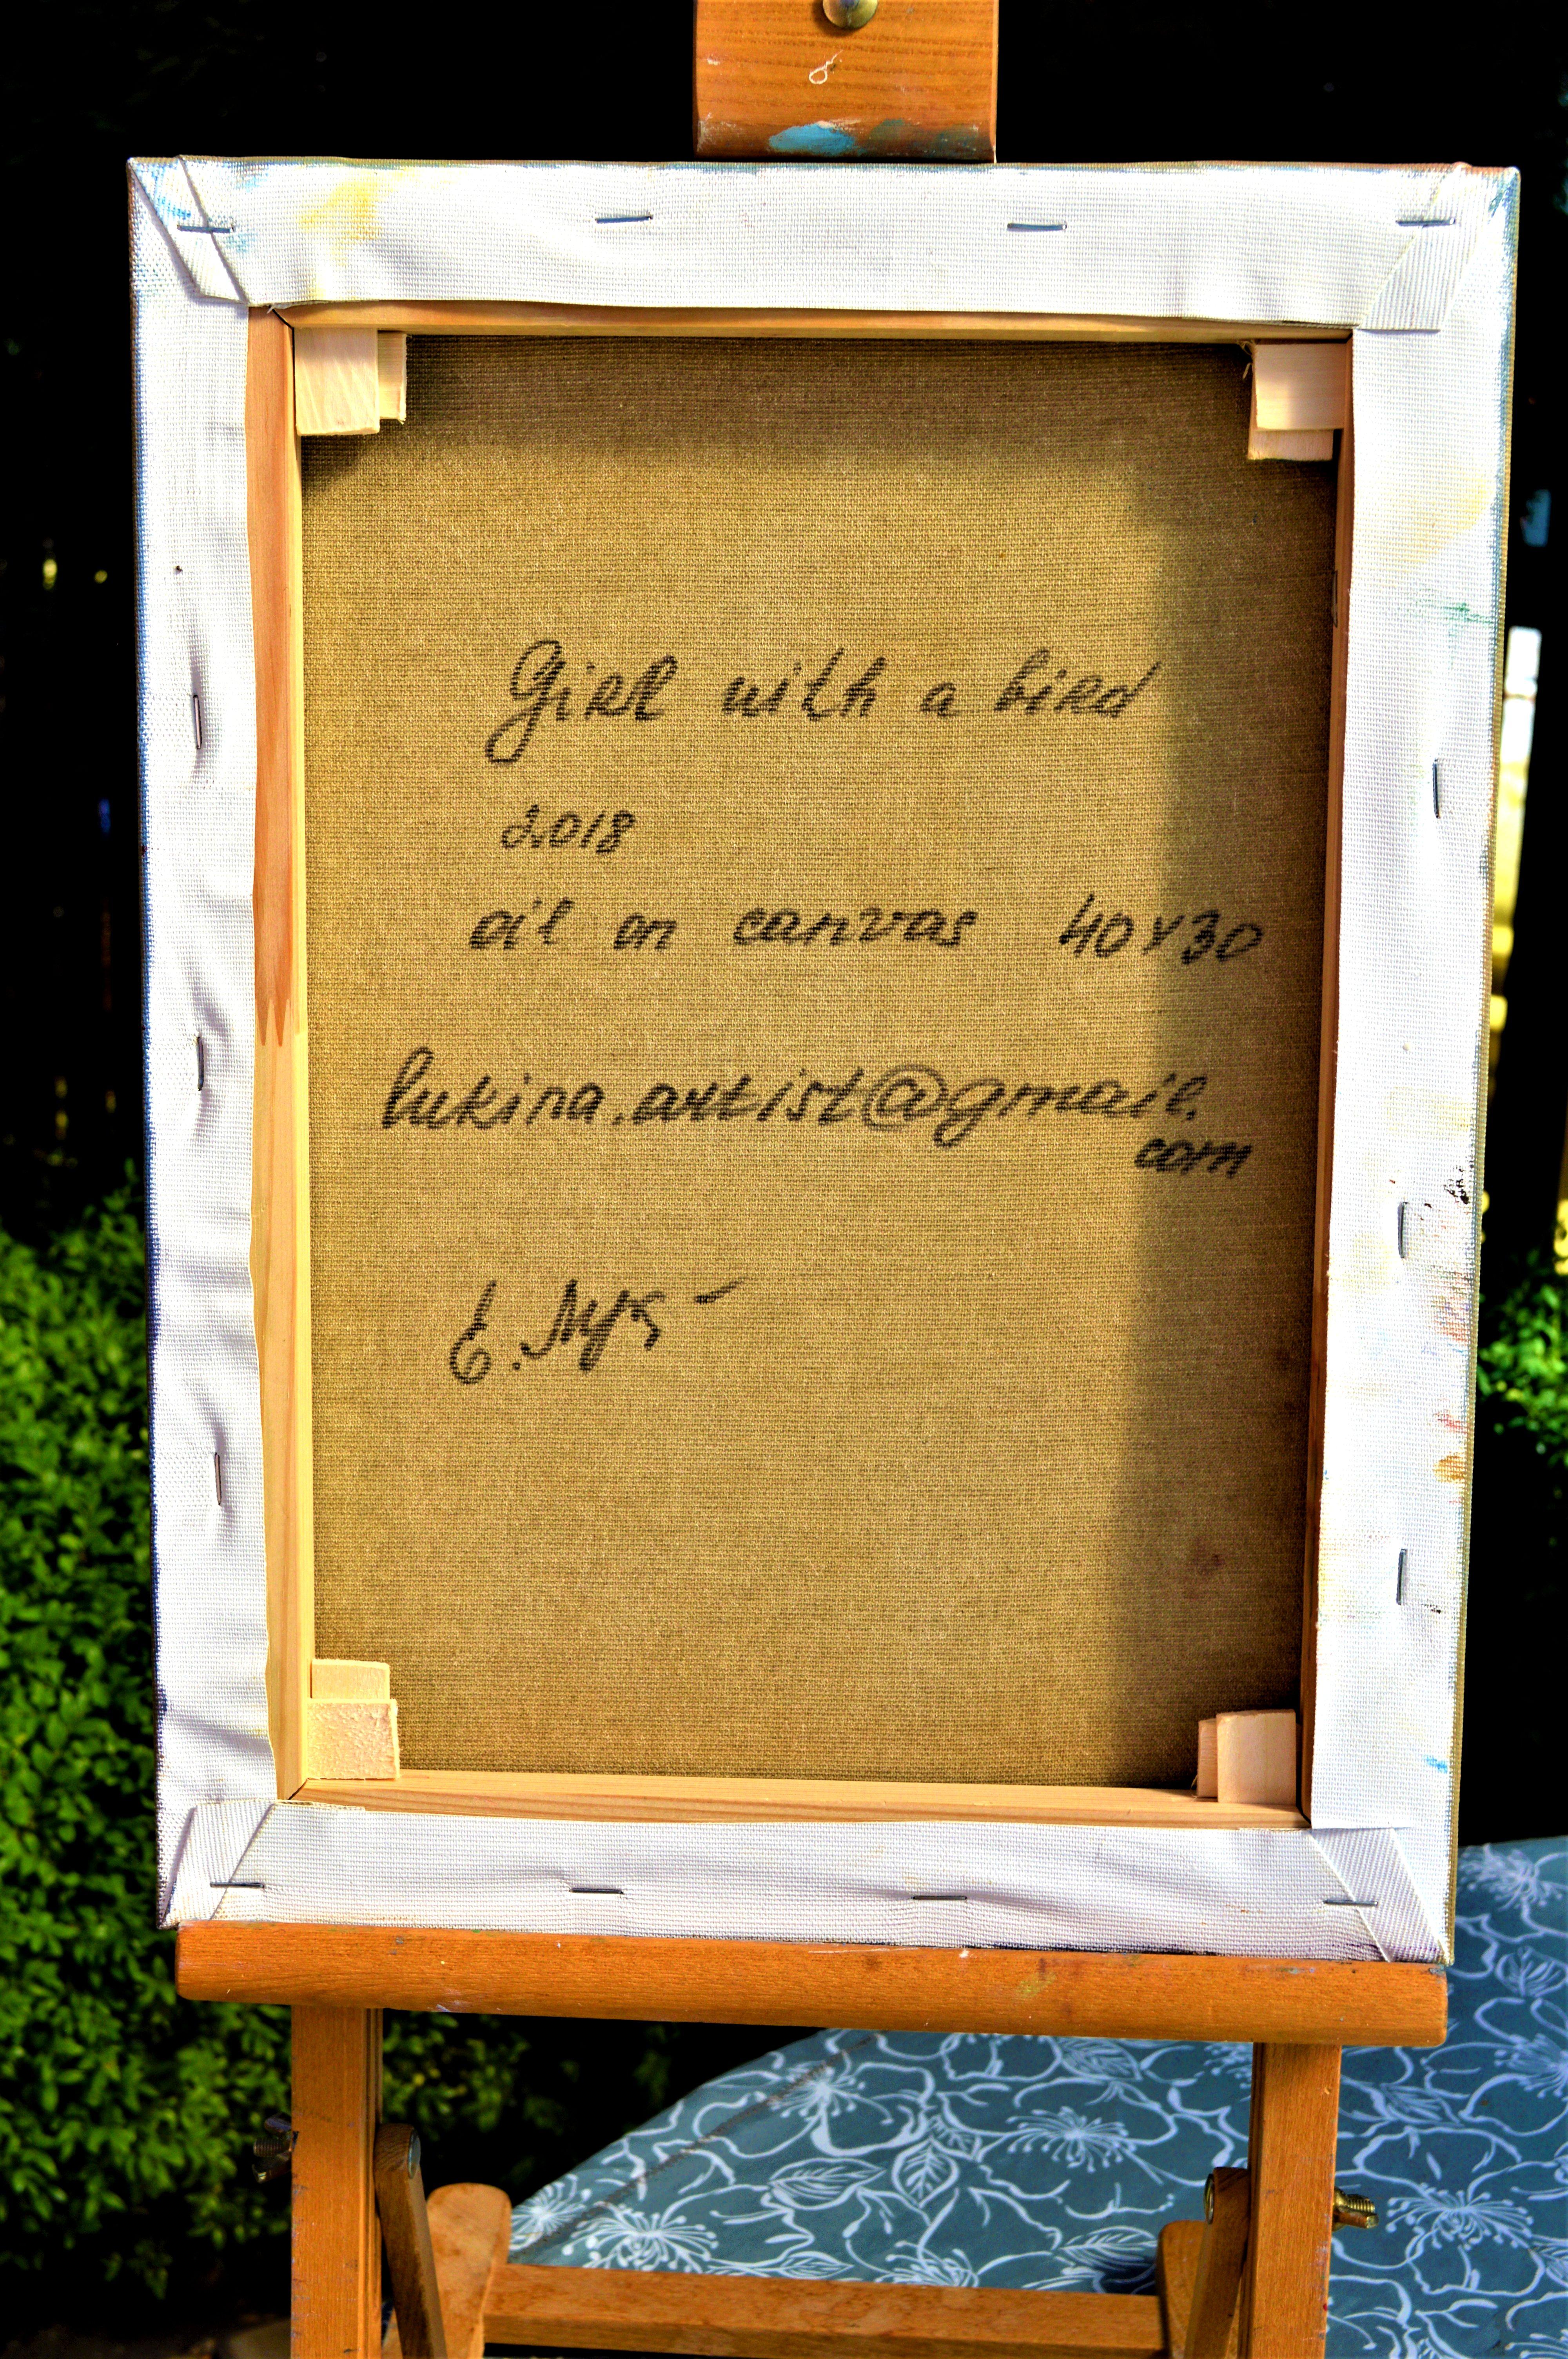 Girl with a bird
2018
oil on canvas 40x30
lukina.artist@gmail.
com
Е. Лук